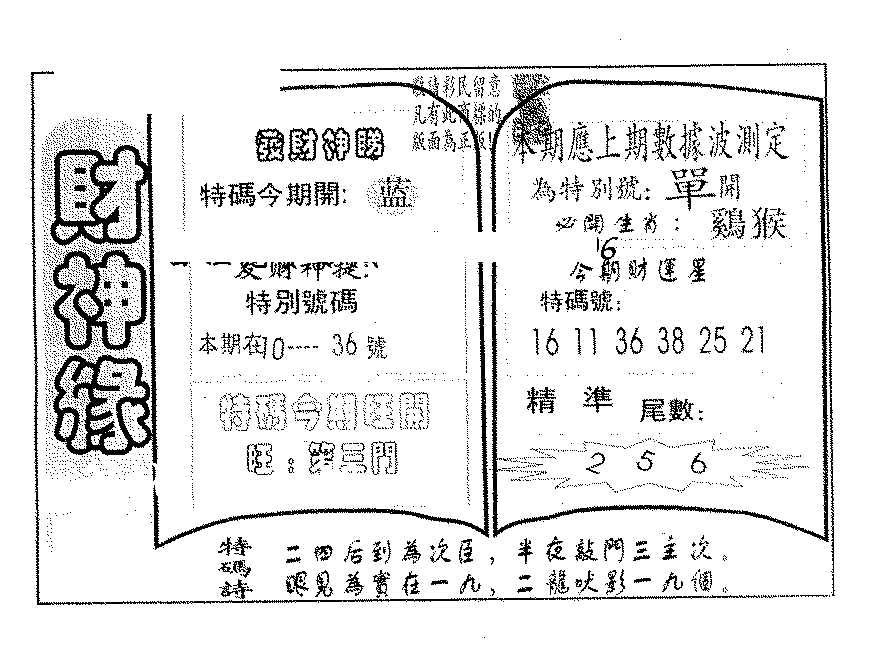 財神緣
敬請彩民留意
凡有此商標的
版面為正版!
發財神睇
特碼今期開: 蓝
特別號碼
本期在10----36號
特碼今期旺開
旺:第三門
本期應上期數據波測定
為特別號: 單開
必開生肖: 鷄猴
6
今期財運星
特碼號:
16 11 36 38 25 21
精準 尾數:
2 5 6
特碼詩
二四后到為次臣,半夜敲門三主次。
眼見為實在一九,二龍吠影一九個。